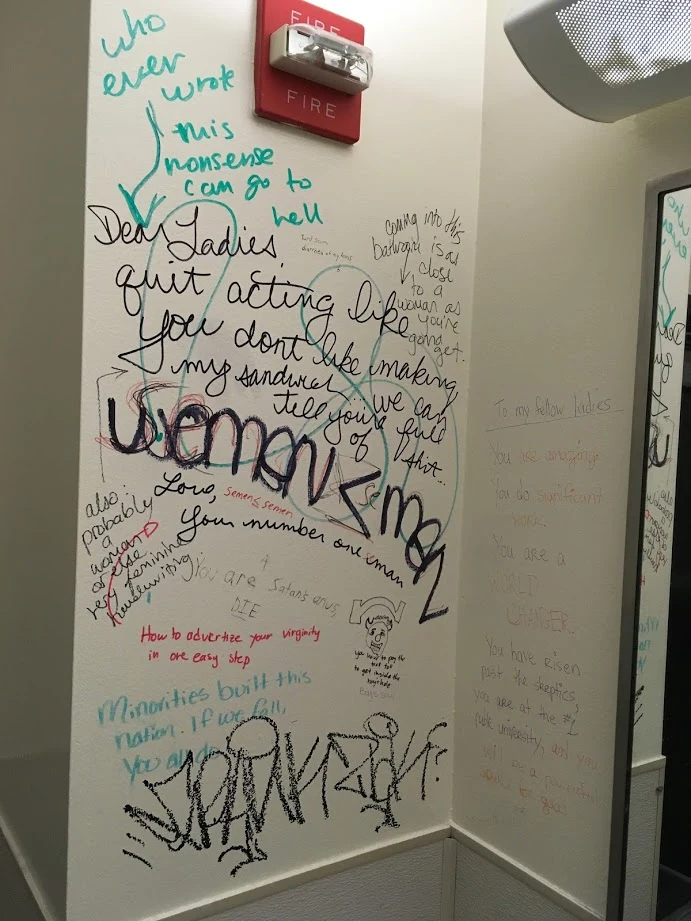 FIRE
FIRE
who
ever
wrote
this
nonsense
can go to
hell
Dear Ladies,
quit acting like
you dont like making
my sandwich we can
tell you're full
of shit...
coming into this
bathroom is as
close
to a
woman as
you're
gonna
get.
wemen < men
Love, semen ≤ semen
Your number one man
also:
probably
a
woman
or else
very feminine
handwriting
You are Satan's anus,
DIE
How to advertize your virginity
in one easy step
you have to pay the
troll toll
to get inside the
Minorities built this
nation. If we fall,
You all do
To my fellow Ladies
You are amazing!
You do significant
work.
You are a
WORLD
CHANGER.
You have risen
past the skeptics,
you are at the #1
public university, and you
will be a powerful